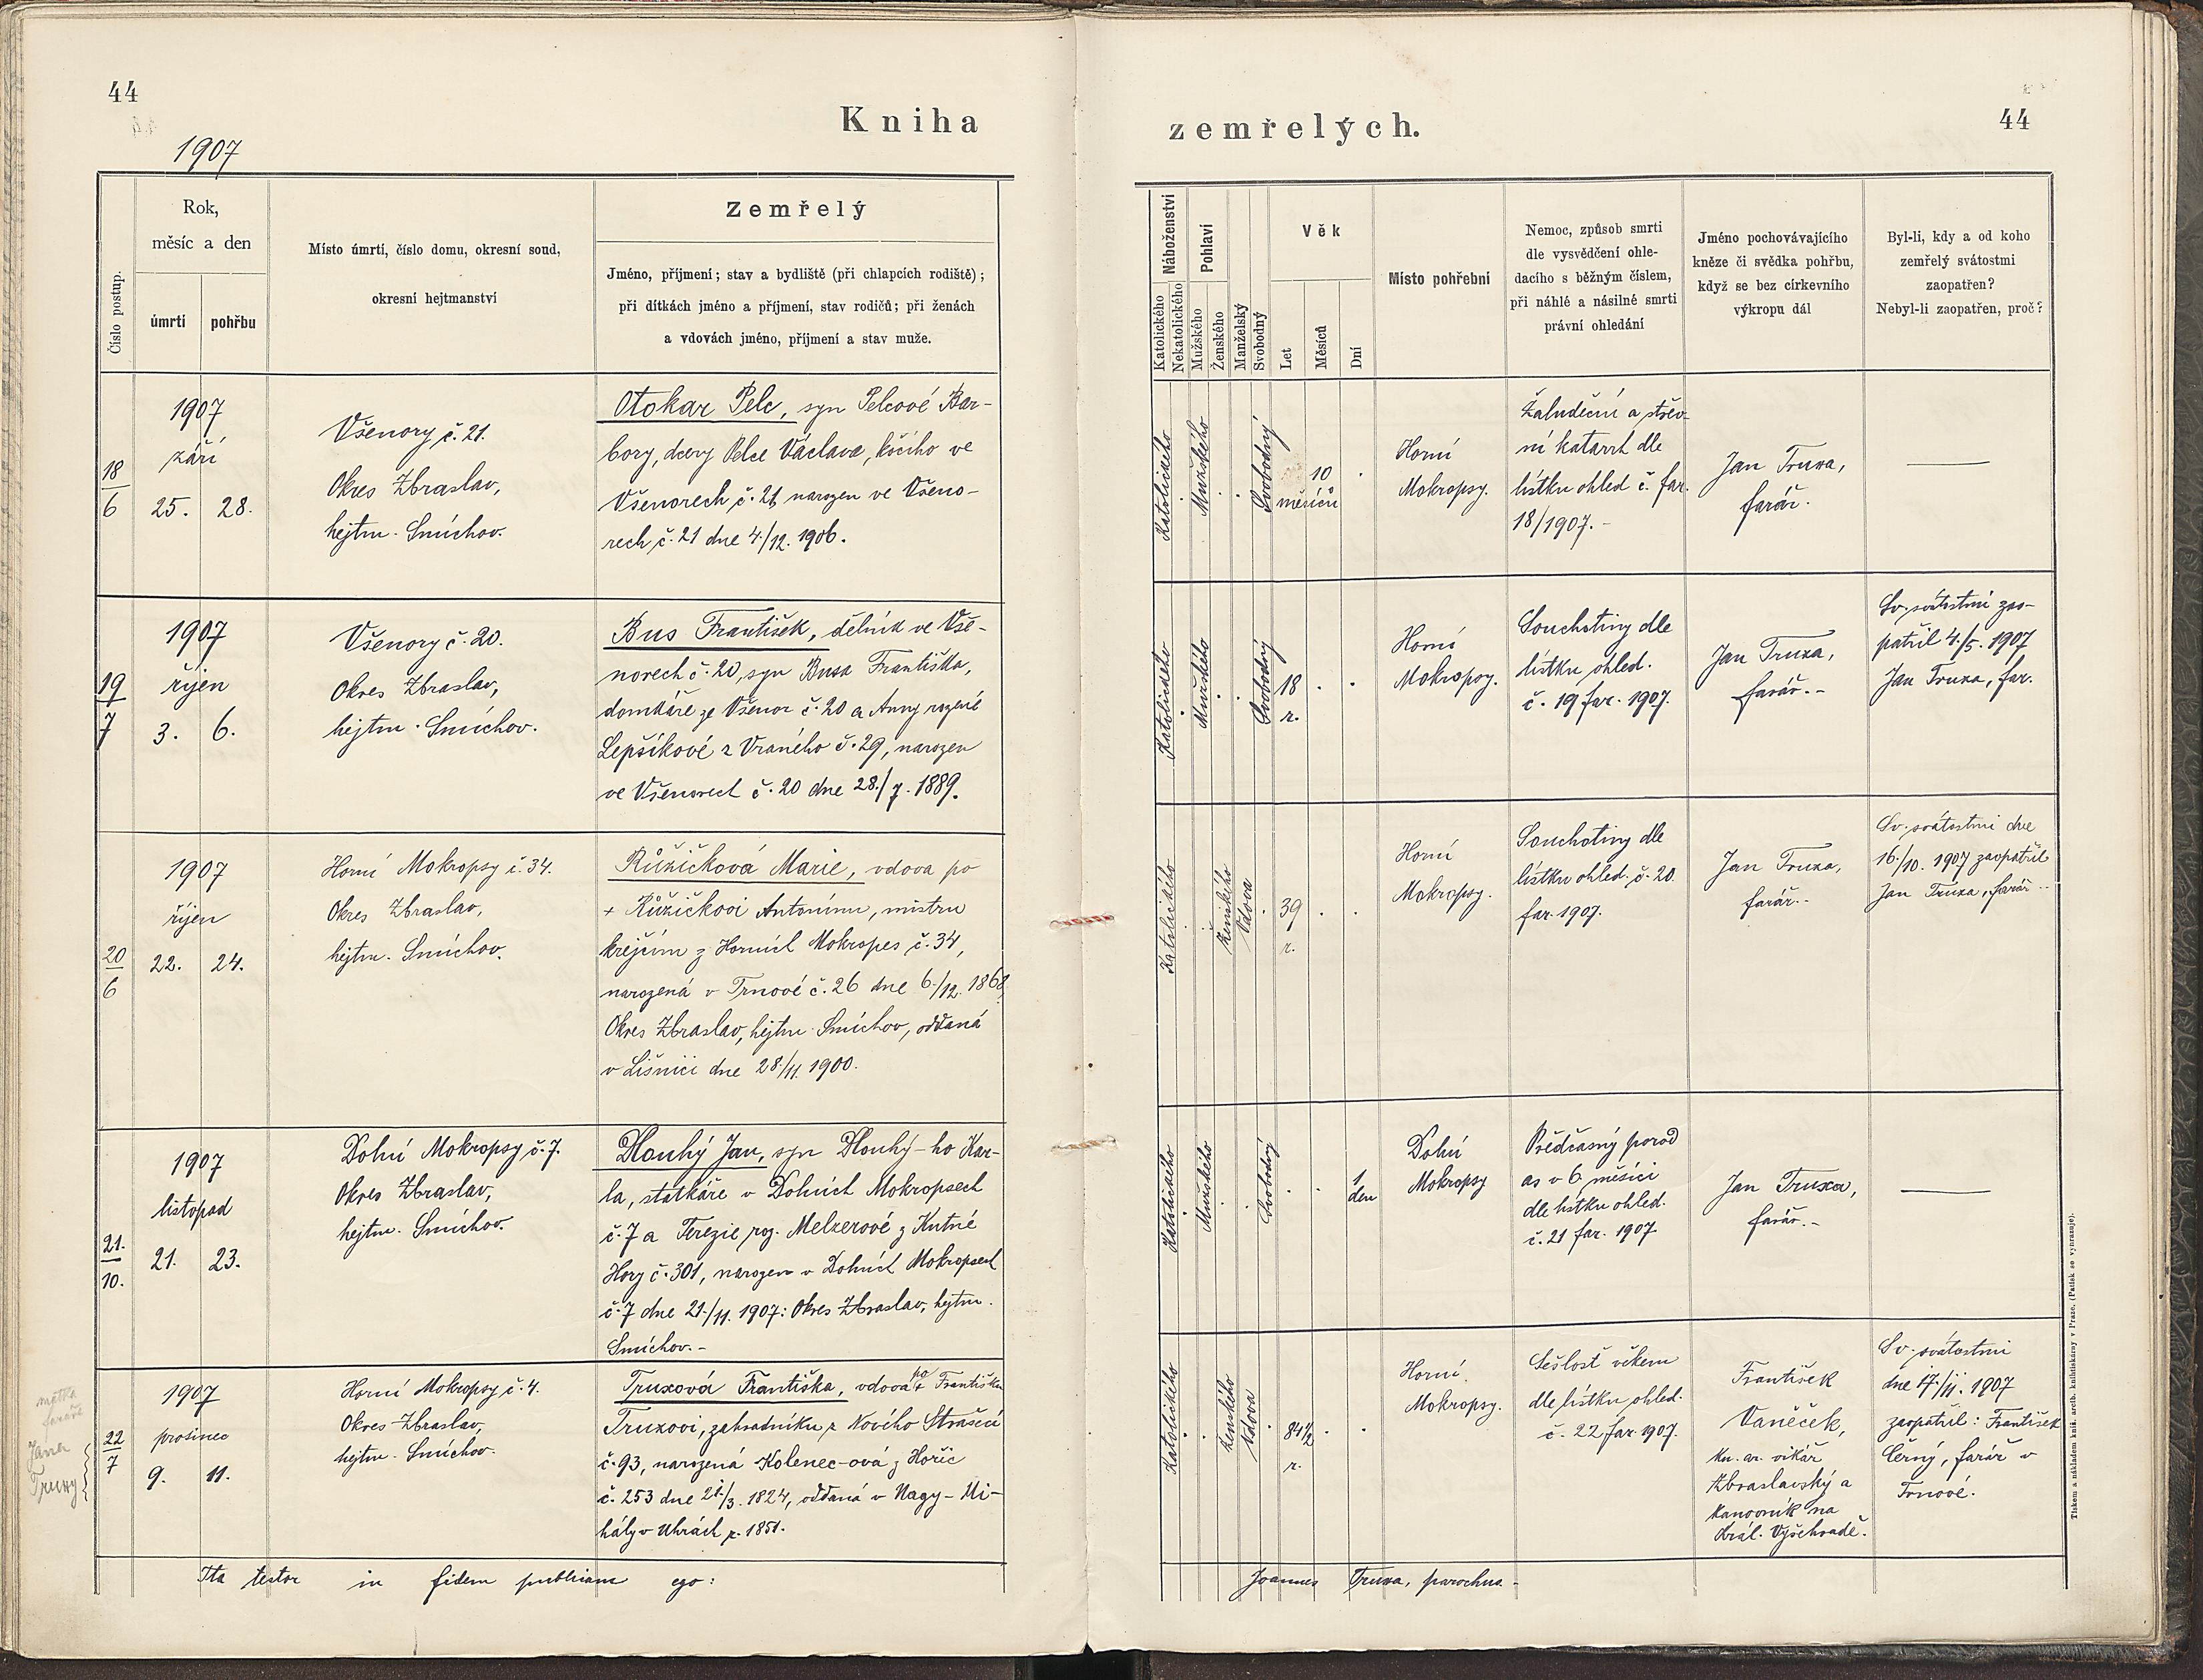 44
Kniha
1907
Číslo postup.
Rok,
měsíc a den
úmrtí
pohřbu
Místo úmrtí, číslo domu, okresní soud,
okresní hejtmanství
Zemřelý
Jméno, příjmení; stav a bydliště (při chlapcích rodiště);
při dítkách jméno a příjmení, stav rodičů; při ženách
a vdovách jméno, příjmení a stav muže.
18
6
1907
září
25. 28.
Všenory č. 21.
Okres Zbraslav,
hejtm. Smíchov.
Otokar Pelc, syn Pelcové Bar-
bory, dcery Pelce Václava, kočího ve
Všenorech č. 21, narozen ve Všeno-
rech č. 21 dne 4/12. 1906.
19
7
1907
říjen
3. 6.
Všenory č. 20.
Okres Zbraslav,
hejtm. Smíchov.
Bus František, dělník ve Vše-
norech č. 20, syn Busa Františka,
domkáře ze Všenor č. 20 a Anny rozené
Lepšíkové z Vraného č. 29, narozen
ve Všenorech č. 20 dne 28./7. 1889.
20
6
1907
říjen
22. 24.
Horní Mokropsy č. 34.
Okres Zbraslav,
hejtm. Smíchov.
Růžičková Marie, vdova po
+ Růžičkovi Antonínu, mistru
krejčím z Horních Mokropes č. 34,
narozená v Trnové č. 26 dne 6./12. 1868,
Okres Zbraslav, hejtm. Smíchov, oddaná
v Lišnici dne 28./11. 1900.
21.
10.
1907
listopad
21. 23.
Dolní Mokropsy č. 7.
Okres Zbraslav,
hejtm. Smíchov.
Dlouhý Jan, syn Dlouhý-ho Kar-
la, statkáře v Dolních Mokropsech
č. 7 a Terezie roz. Melzerové z Kutné
Hory č. 301, narozen v Dolních Mokropsech
č. 7 dne 21./11. 1907: Okres Zbraslav, hejtm.
Smíchov.-
matka
faráře
Jana
Truxy
22
7
1907
prosinec
9. 11.
Horní Mokropsy č. 4.
Okres Zbraslav,
hejtm. Smíchov.
Truxová Františka, vdova po + Františku
Truxovi, zahradníku z Nového Strašecí
č. 93, narozená Kolenec-ová z Hořic
č. 253 dne 21./3. 1824, oddaná v Nagy-Mi-
hály v Uhrách r. 1851.
Ita testor in fidem publicam ego:
44
zemřelých.
Náboženství
Katolického
Nekatolického
Pohlaví
Mužského
Ženského
Manželský
Svobodný
Věk
Let
Měsíců
Dní
Místo pohřební
Nemoc, způsob smrti
dle vysvědčení ohle-
dacího s běžným číslem,
při náhlé a násilné smrti
právní ohledání
Jméno pochovávajícího
kněze či svědka pohřbu,
když se bez církevního
výkropu dál
Byl-li, kdy a od koho
zemřelý svátostmi
zaopatřen?
Nebyl-li zaopatřen, proč?
Katolického
Mužského
Svobodný
10
měsíců
Horní
Mokropsy.
Žaludeční a střev-
ní katarrh dle
lístku ohled č. far.
18/1907.-
Jan Truxa,
farář.
Katolického
Mužského
Svobodný
18
r.
Horní
Mokropsy.
Souchotiny dle
lístku ohled.
č. 19 far. 1907.
Jan Truxa,
farář.-
Sv. svátostmi zao-
patřil 4./5. 1907
Jan Truxa, far.
Katolického
Ženského
Vdova
39
r.
Horní
Mokropsy.
Souchotiny dle
lístku ohled. č. 20.
far. 1907.
Jan Truxa,
farář.-
Sv. svátostmi dne
16./10. 1907 zaopatřil
Jan Truxa, farář.-
Katolického
Mužského
Svobodný
1
den
Dolní
Mokropsy
Předčasný porod
as v 6 měsíci
dle lístku ohled.
č. 21 far. 1907
Jan Truxa,
farář.-
Katolického
Ženského
Vdova
84 1/2
r.
Horní
Mokropsy.
Sešlost věkem
dle lístku ohled.
č. 22 far. 1907.
František
Vaněček,
kn. ar. vikář
Zbraslavský a
kanovník na
král. Vyšehradě.
Sv. svátostmi
dne 17./11. 1907
zaopatřil: František
Černý, farář v
Trnové.
Joannes Truxa, parochus.-
Tiskem a nákladem kníž. arcib. knihtiskárny v Praze. (Patisk se vyhrazuje).